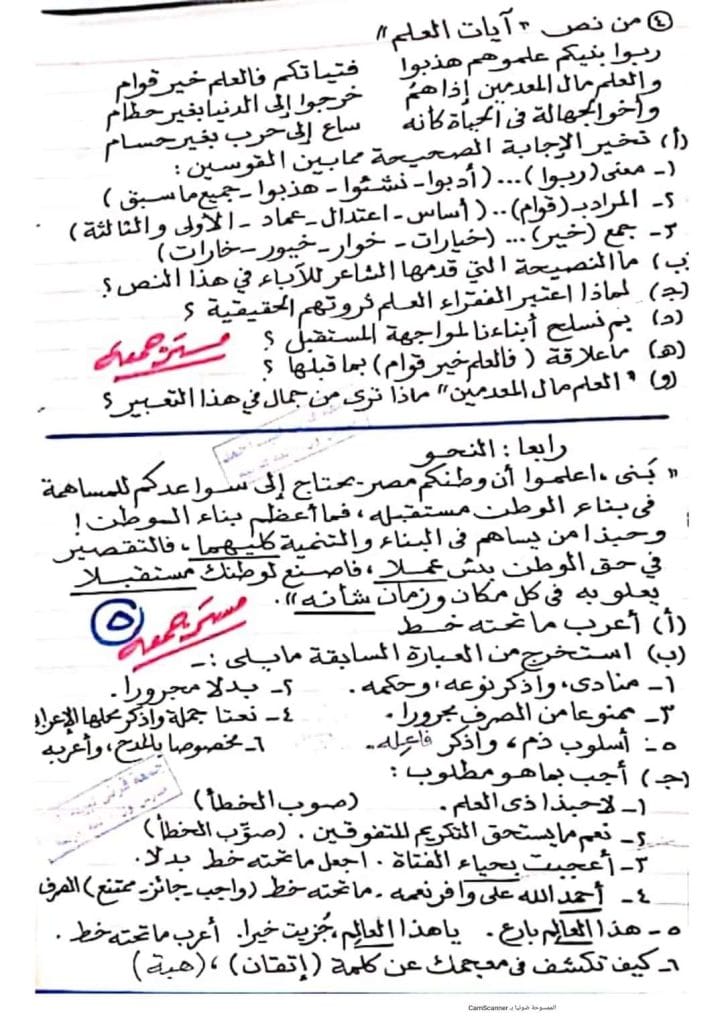 ٤ من نص " آيات العلم "
ربوا بنيكم علموهم هذبوا فتياتكم فالعلم خير قوام
والعلم مال المعدمين إذا همُ خرجوا إلى الدنيا بغير حطام
وأخو الجهالة في الحياة كأنه ساع إلى حرب بغير حسام
(أ) تخير الإجابة الصحيحة مما بين القوسين :
١- معنى (ربوا) ... (أدبوا - نشئوا - هذبوا - جميع ما سبق)
٢- المراد بـ (قوام) .. (أساس - اعتدال - عماد - الأولى والثالثة)
٣- جمع (خير) ... (خيارات - خوار - خيور - خارات)
(ب) ما النصيحة التي قدمها الشاعر للآباء في هذا النص ؟
(جـ) لماذا اعتبر الفقراء العلم ثروتهم الحقيقية ؟
(د) بم نسلح أبناءنا لمواجهة المستقبل ؟
(هـ) ما علاقة (فالعلم خير قوام) بما قبلها ؟
مستر جمعة
(و) " العلم مال المعدمين" ماذا ترى من جمال في هذا التعبير ؟
رابعا : النحو
" بَنى ، اعلموا أن وطنكم مصر يحتاج إلى سواعدكم للمساهمة
في بناء الوطن مستقبله ، فما أعظم بناء الوطن !
وحبذا من يساهم في البناء والتنمية كليهما ، فالتقصير
في حق الوطن بئس عملا ، فاصنع لوطنك مستقبلا
يعلو به في كل مكان وزمان شأنه".
(أ) أعرب ما تحته خط
٥ مستر جمعة
(ب) استخرج من العبارة السابقة ما يلى :-
١- منادى، واذكر نوعه، وحكمه. ٢- بدلا مجرورا.
٣- ممنوعا من الصرف مجرورا. ٤- نعتا جملة واذكر محلها الإعرابى
٥- أسلوب ذم ، واذكر فاعله. ٦- مخصوصا بالمدح، وأعربه
(جـ) أجب بما هو مطلوب :
١- لاحبذا ذى العلم . (صوب الخطأ)
٢- نعم ما يستحق التكريم للتفوقين . (صوّب الخطأ)
٣- أعجبت بحياء الفتاة . اجعل ما تحته خط بدلا.
٤- أحمد الله على وافر نعمه . ما تحته خط (واجب - جائز - ممتنع) الصرف
٥- هذا العالِم بارع . يا هذا العالِم ، جُزيت خيرا . أعرب ما تحته خط .
٦- كيف تكشف في معجمك عن كلمة (إتقان) ، (هبة)
الممسوحة ضوئيا بـ CamScanner